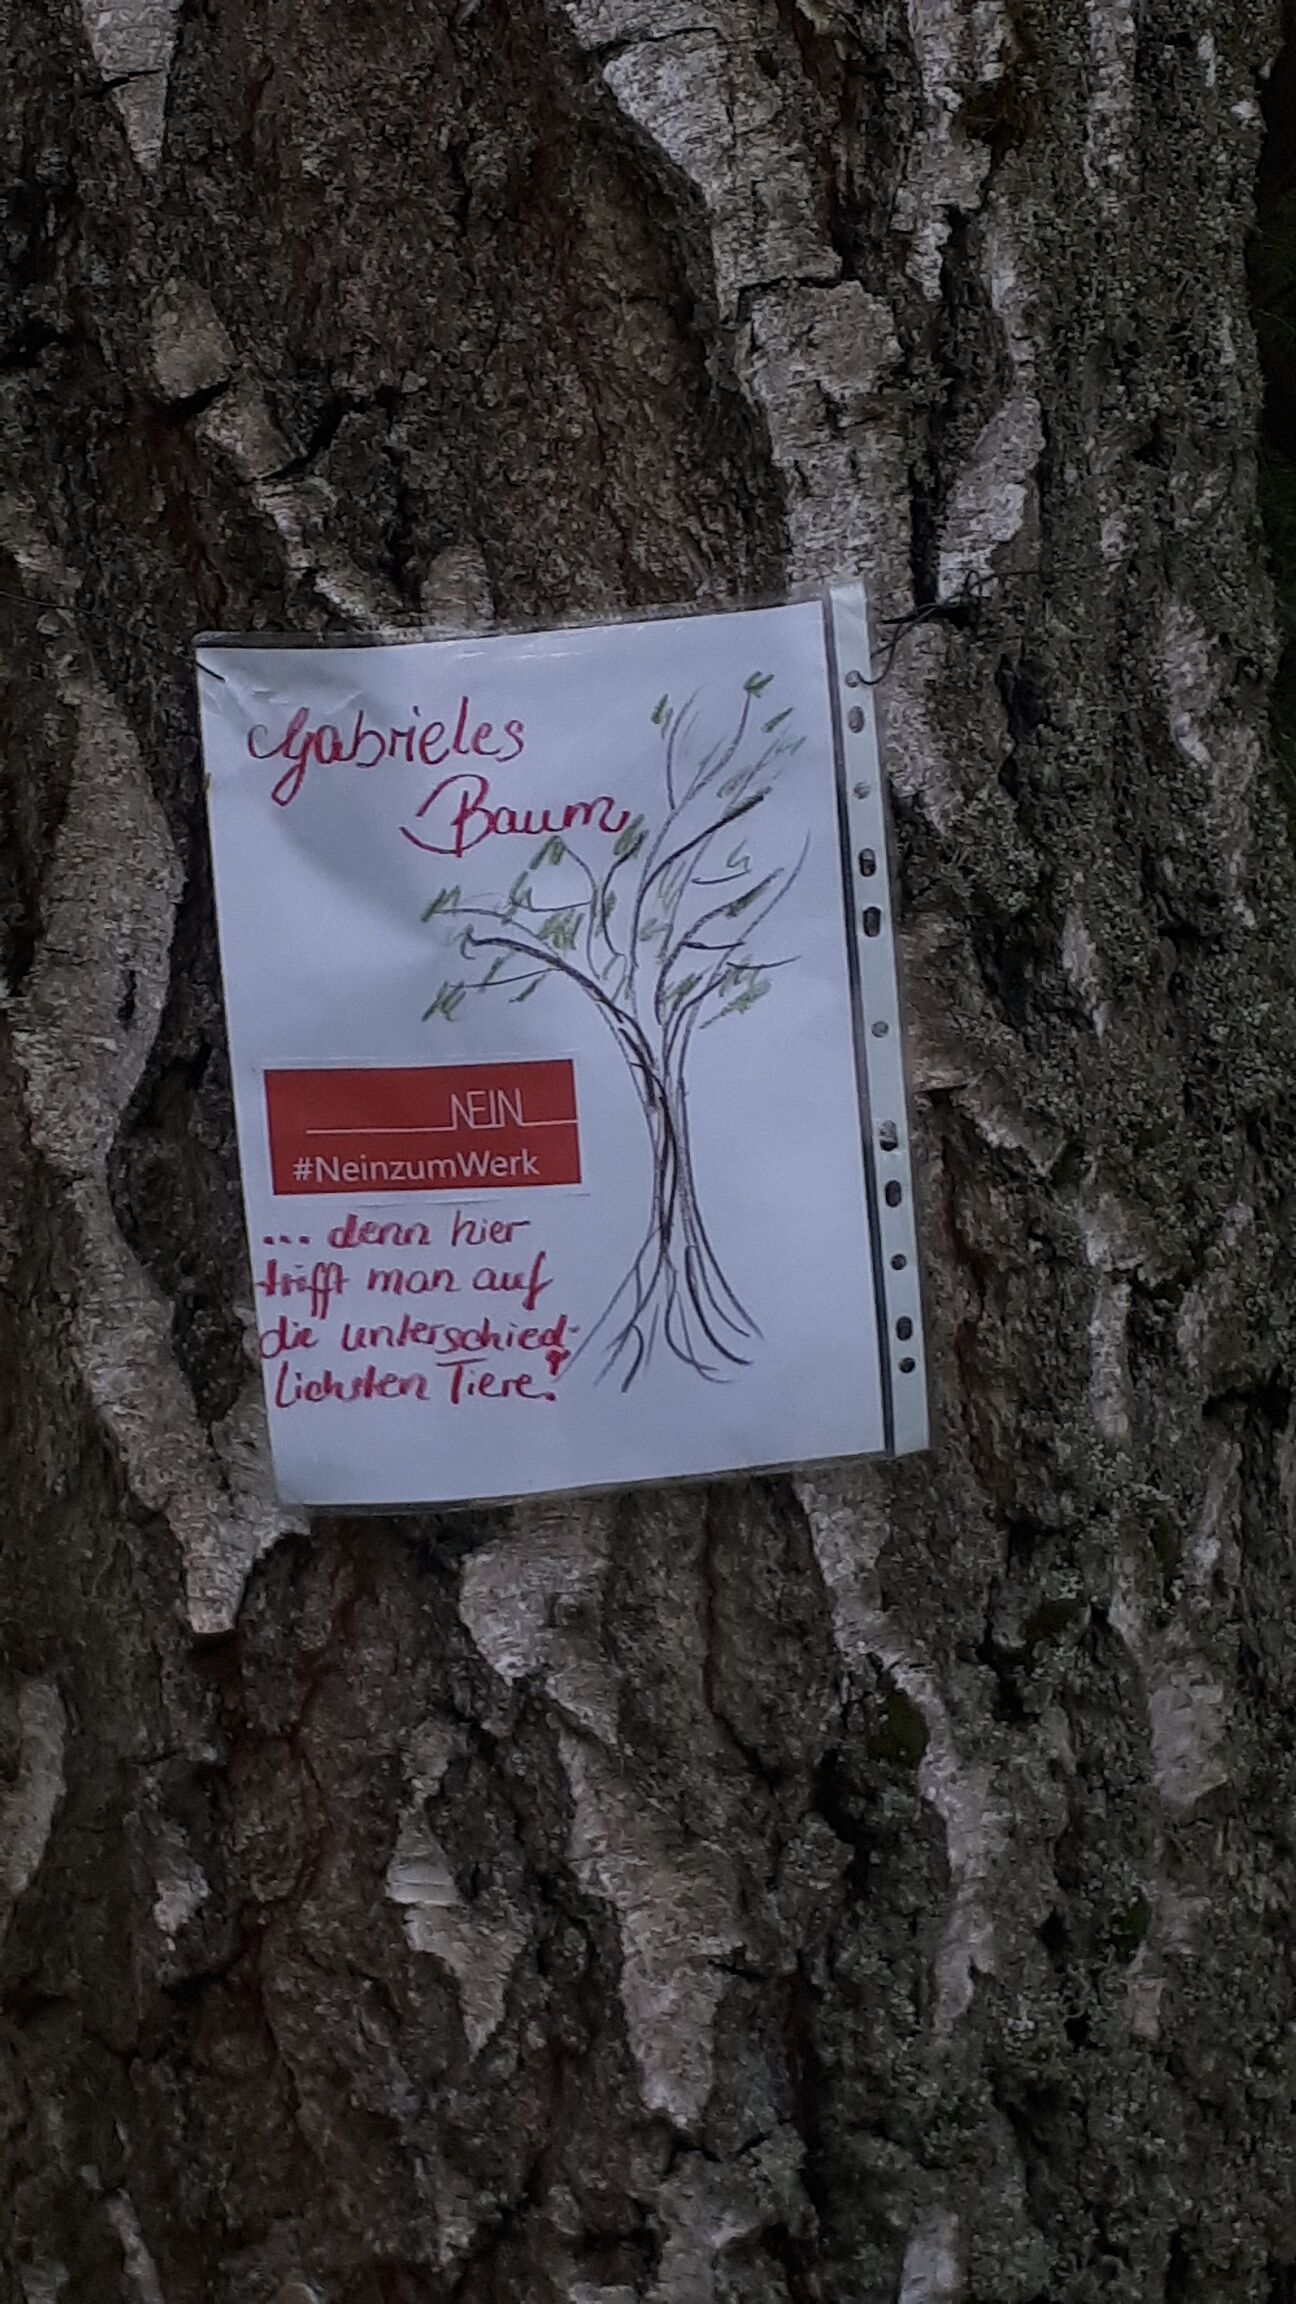 Gabrieles
Baum
NEIN
#NeinzumWerk
... denn hier
trifft man auf
die unterschied-
lichsten Tiere!